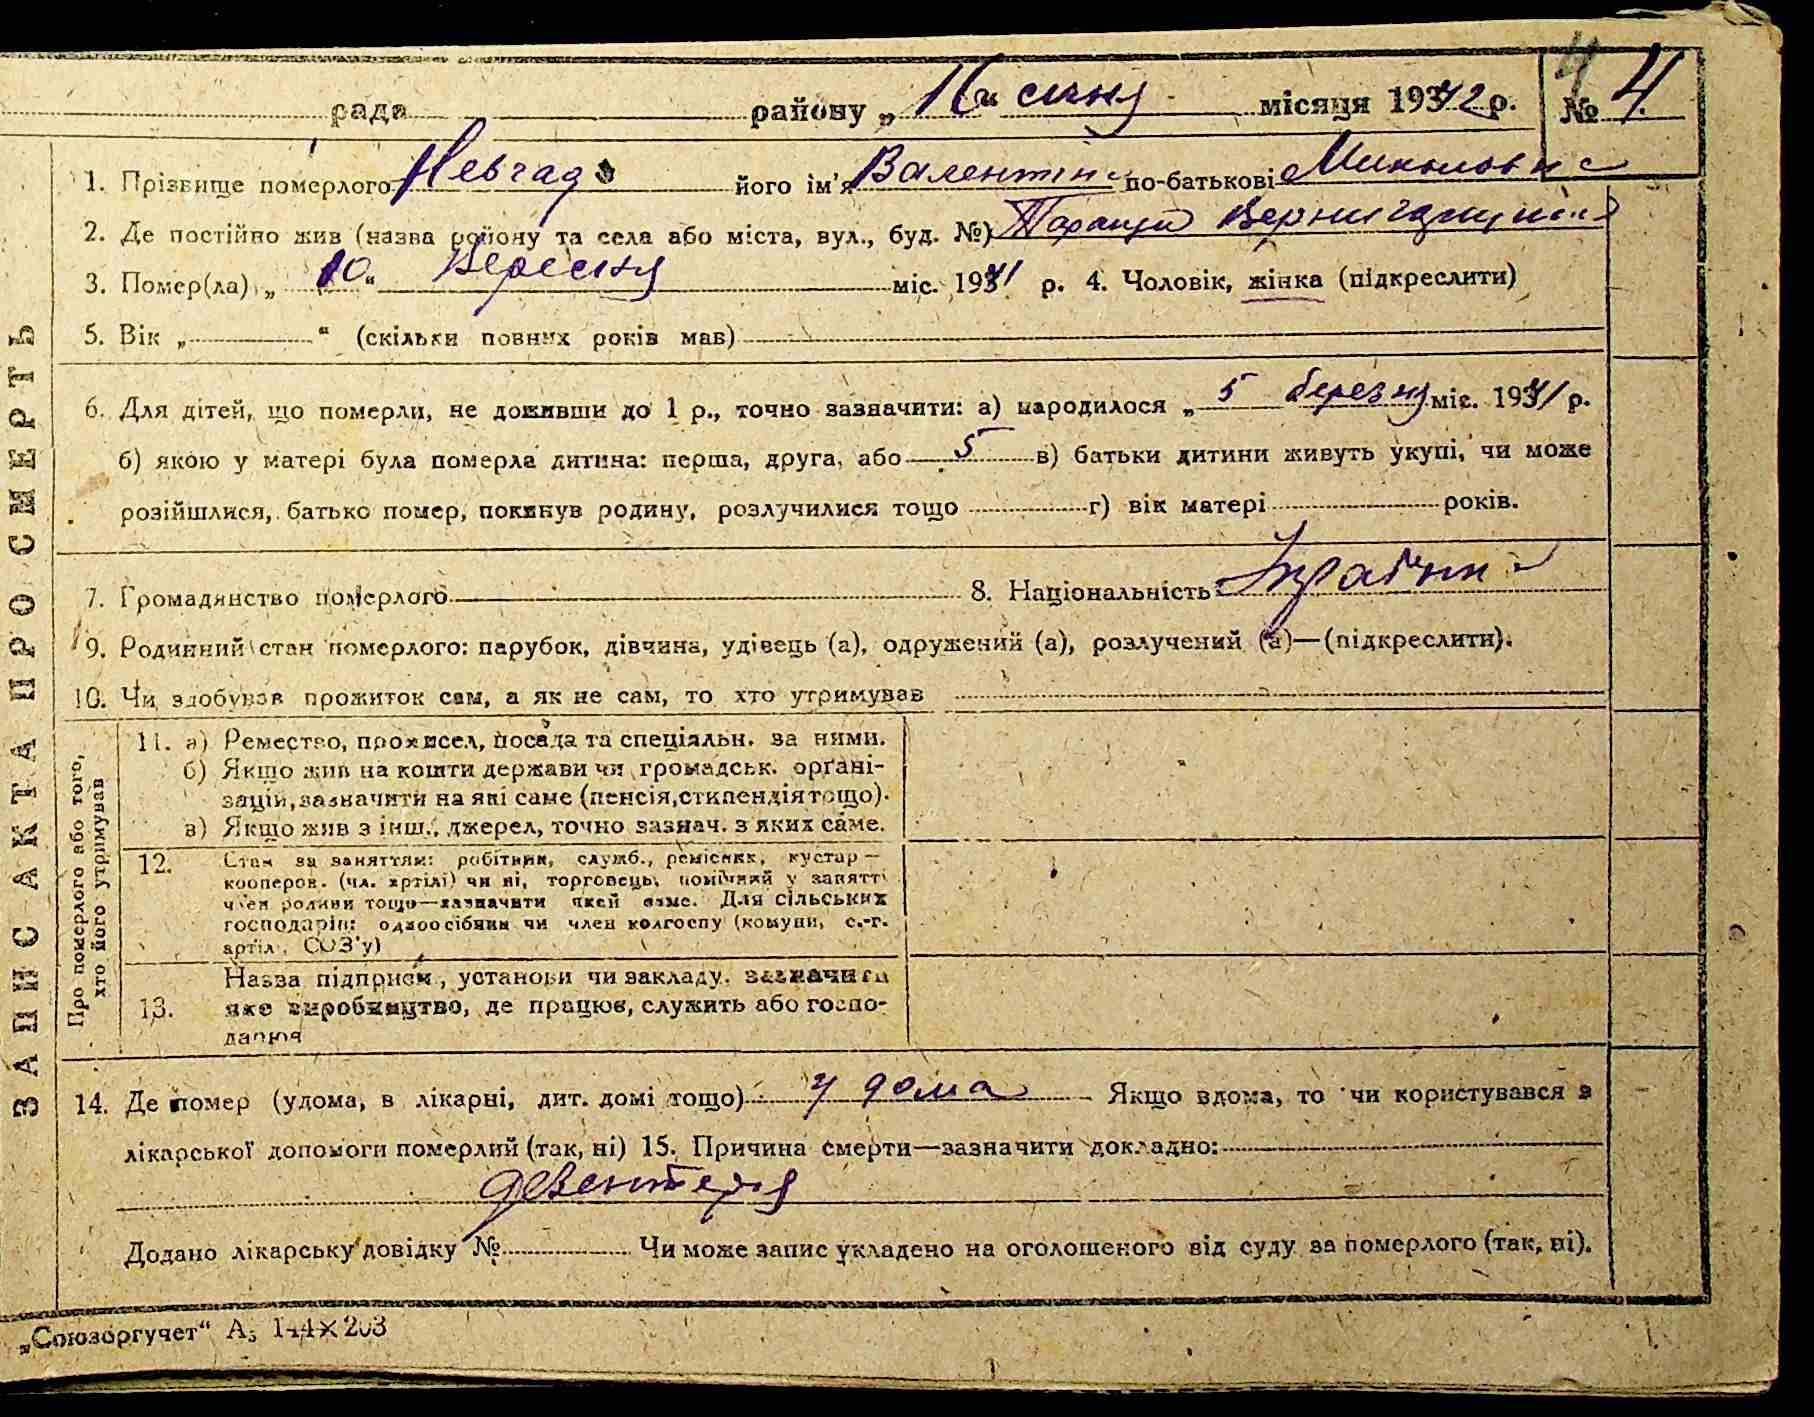 рада району „ 16 “ січня місяця 1942 р. № 4.
ЗАПИС АКТА ПРО СМЕРТЬ
1. Прізвище померлого його ім'я Валентина по-батькові Миколовна
2. Де постійно жив (назва району та села або міста, вул., буд. №)
3. Помер(ла) „ 10 “ Вересня міс. 1941 р. 4. Чоловік, жінка (підкреслити)
5. Вік „ “ (скільки повних років мав)
6. Для дітей, що померли, не доживши до 1 р., точно зазначити: а) народилося „ 5 березня міс. 1941 р.
б) якою у матері була померла дитина: перша, друга, або 5 в) батьки дитини живуть укупі, чи може
розійшлися, батько помер, покинув родину, розлучилися тощо г) вік матері років.
7. Громадянство померлого 8. Національність
9. Родинний стан померлого: парубок, дівчина, удівець (а), одружений (а), розлучений (а)—(підкреслити).
10. Чи здобував прожиток сам, а як не сам, то хто утримував
Про померлого або того,
хто його утримував
11. а) Ремество, промисел, посада та спеціяльн. за ними.
б) Якщо жив на кошти держави чи громадськ. орґані-
зацій, зазначити на які саме (пенсія, стипендія тощо).
в) Якщо жив з інш. джерел, точно зазнач. з яких саме.
12. Стан за заняттям: робітник, служб., ремісник, кустар —
кооперов. (чл. артілі) чи ні, торговець, помічний у занятті
член родини тощо—зазначити який саме. Для сільських
господарів: одноосібник чи член колгоспу (комуни, с.-г.
артіл., СОЗ'у)
Назва підприєм., установи чи закладу, зазначити
13. яке виробництво, де працює, служить або госпо-
дарює
14. Де помер (удома, в лікарні, дит. домі тощо) у дома Якщо вдома, то чи користувався з
лікарської допомоги померлий (так, ні) 15. Причина смерти—зазначити докладно:
дезентерія
Додано лікарську довідку № Чи може запис укладено на оголошеного від суду за померлого (так, ні).
„Союзоргучет“ А₅ 144×203